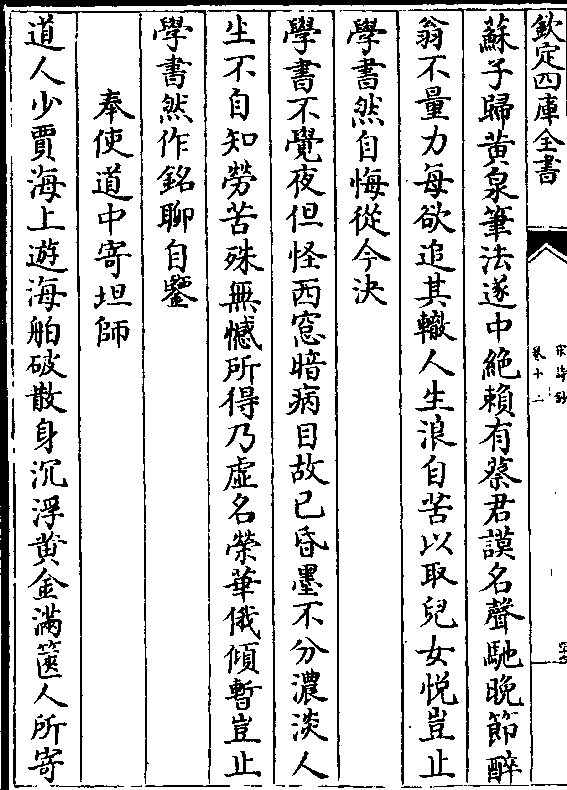 欽定四庫全書
宋詩鈔
卷十二
蘇子歸黄泉筆法遂中絶賴有蔡君謨名聲馳晚節醉
翁不量力每欲追其轍人生浪自苦以取兒女悦豈止
學書然自悔從今决
學書不覺夜但怪西窓暗病目故已昏墨不分濃淡人
生不自知勞苦殊無憾所得乃虚名榮華俄傾暫豈止
學書然作銘聊自鑒
奉使道中寄坦師
道人少賈海上遊海舶破散身沉浮黄金滿篋人所寄